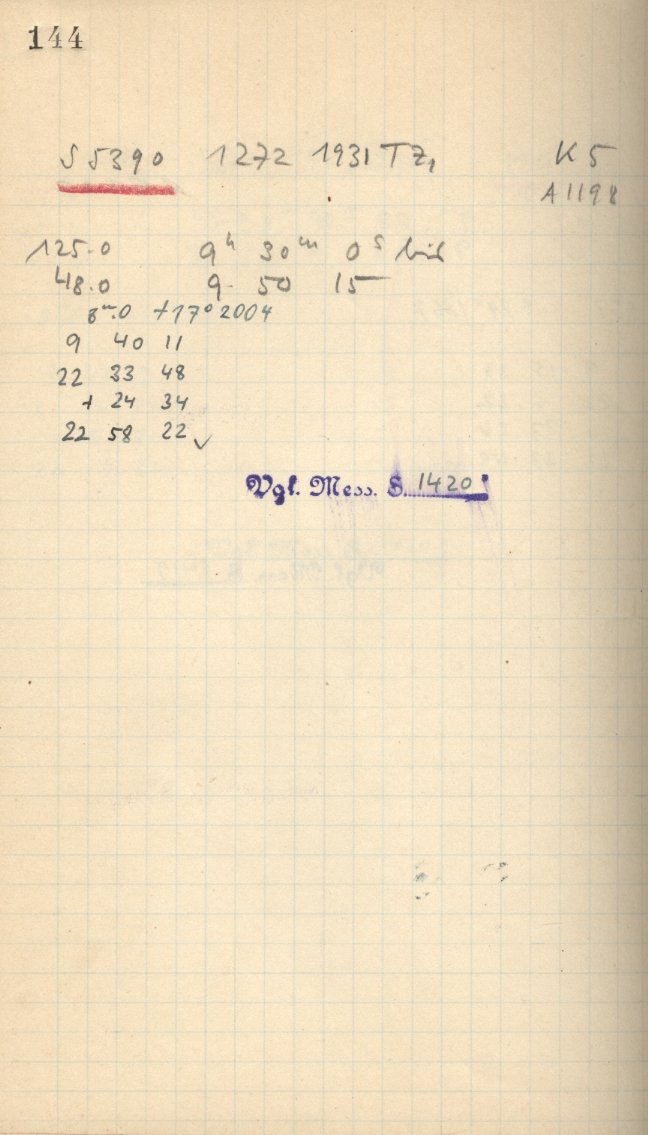 144
S 5390 1272 1931 TZ₁ K 5
A 1198
125.0 9ʰ 30ᵐ 0ˢ bis
48.0 9 50 15
8ᵐ.0 +17° 2004
9 40 11
22 33 48
+ 24 34
22 58 22 ✓
Vgl. Mess. S. 1420